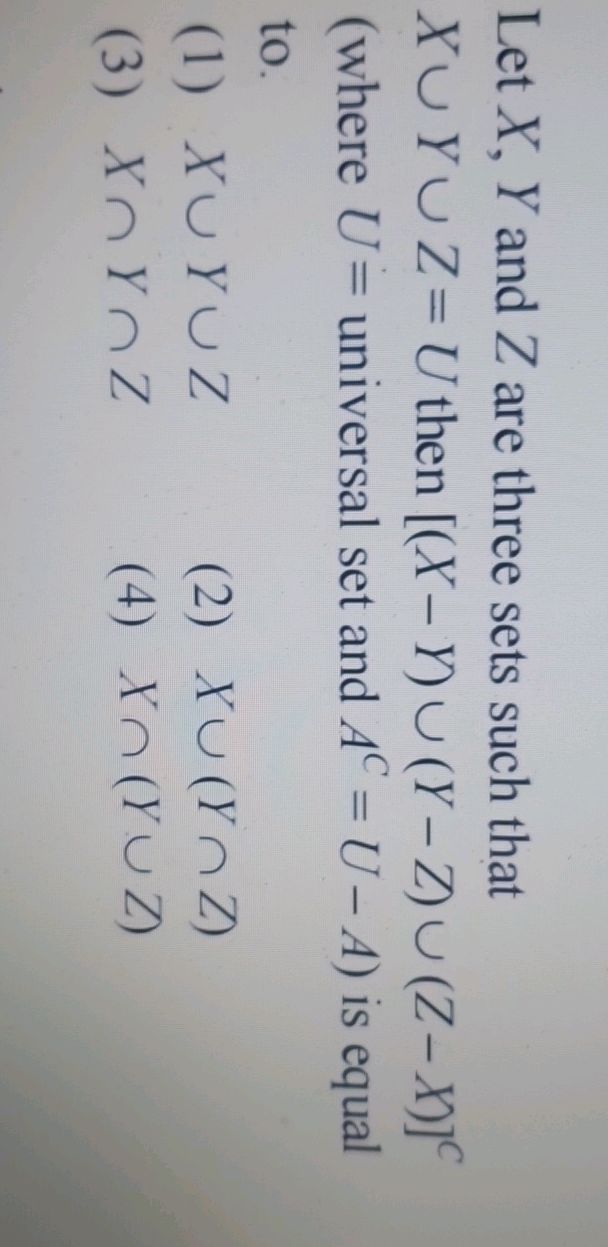 Let X, Y and Z are three sets such that
X ∪ Y ∪ Z = U then [(X – Y) ∪ (Y – Z) ∪ (Z – X)]ᶜ
(where U = universal set and Aᶜ = U – A) is equal
to.
(1) X ∪ Y ∪ Z (2) X ∪ (Y ∩ Z)
(3) X ∩ Y ∩ Z (4) X ∩ (Y ∪ Z)